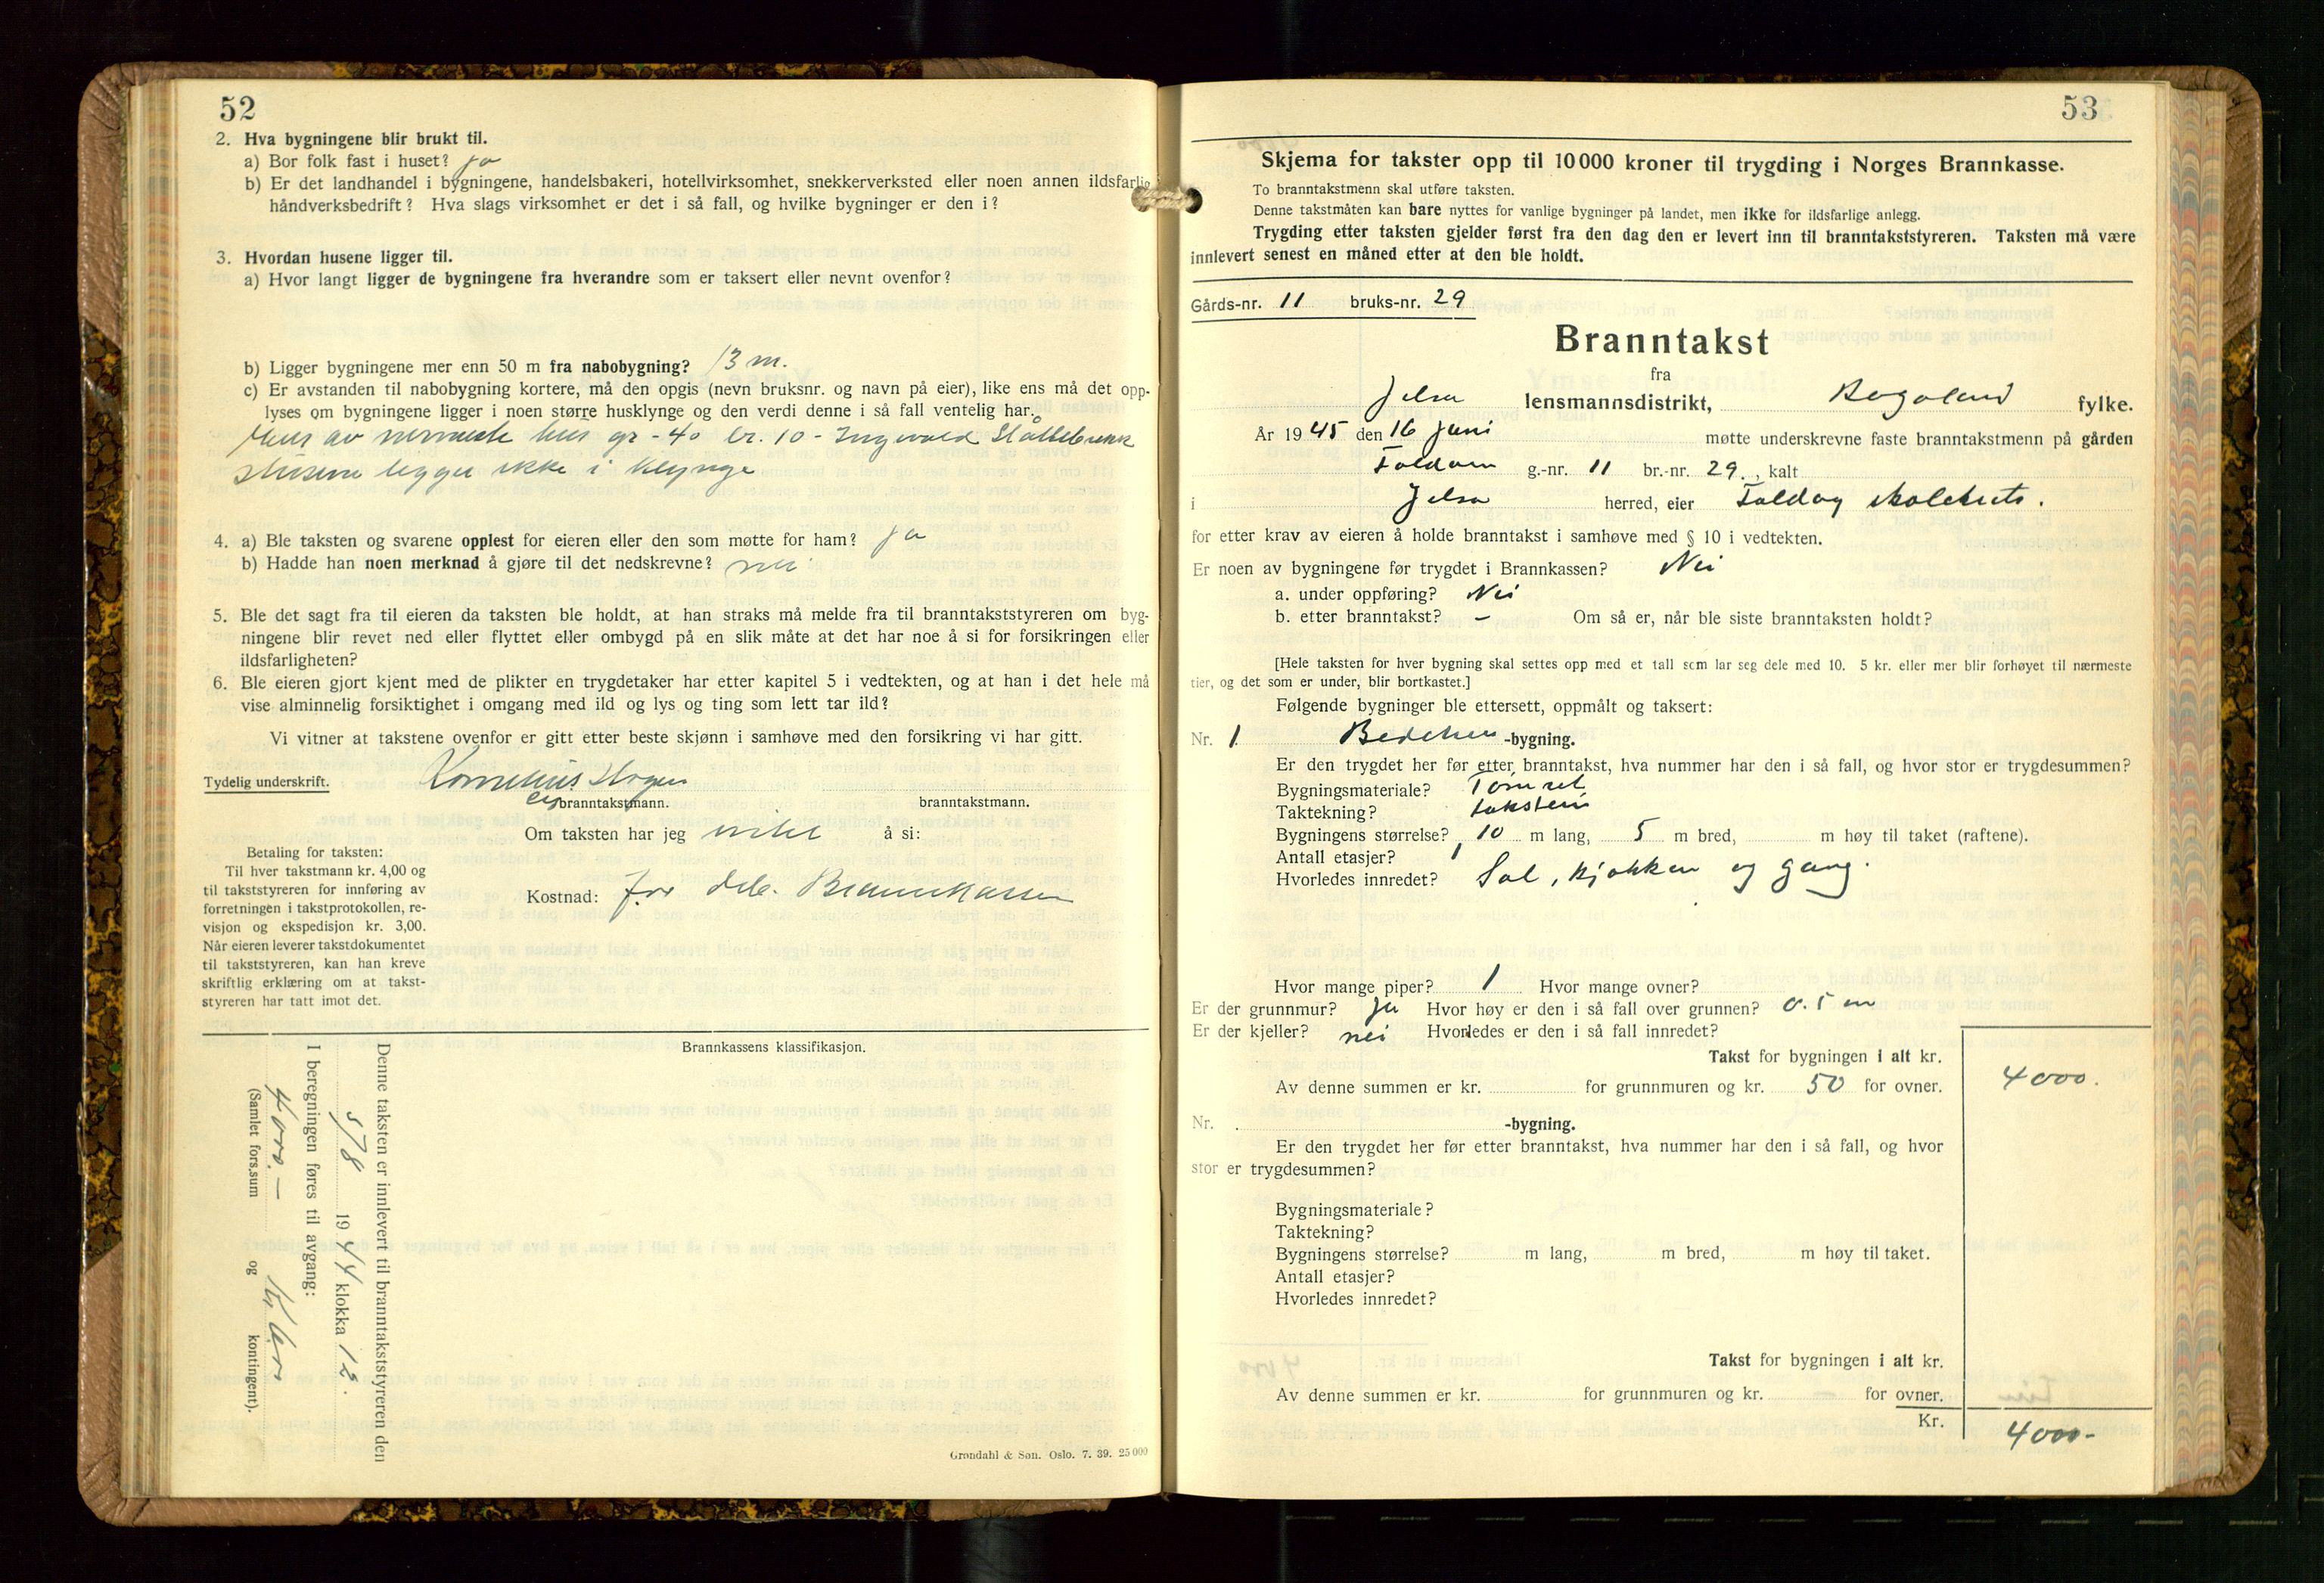 52
2. Hva bygningene blir brukt til.
a) Bor folk fast i huset? ja
b) Er det landhandel i bygningene, handelsbakeri, hotellvirksomhet, snekkerverksted eller noen annen ildsfarlig
håndverksbedrift? Hva slags virksomhet er det i så fall, og hvilke bygninger er den i?
3. Hvordan husene ligger til.
a) Hvor langt ligger de bygningene fra hverandre som er taksert eller nevnt ovenfor?
b) Ligger bygningene mer enn 50 m fra nabobygning? 13 m.
c) Er avstanden til nabobygning kortere, må den opgis (nevn bruksnr. og navn på eier), like ens må det opp-
lyses om bygningene ligger i noen større husklynge og den verdi denne i så fall ventelig har.
av nermeste hus gr - 40 br. 10 - Ingvald
Husene ligger ikke i klynge
4. a) Ble taksten og svarene opplest for eieren eller den som møtte for ham? ja
b) Hadde han noen merknad å gjøre til det nedskrevne? nei
5. Ble det sagt fra til eieren da taksten ble holdt, at han straks må melde fra til branntakststyreren om byg-
ningene blir revet ned eller flyttet eller ombygd på en slik måte at det har noe å si for forsikringen eller
ildsfarligheten?
6. Ble eieren gjort kjent med de plikter en trygdetaker har etter kapitel 5 i vedtekten, og at han i det hele må
vise alminnelig forsiktighet i omgang med ild og lys og ting som lett tar ild?
Vi vitner at takstene ovenfor er gitt etter beste skjønn i samhøve med den forsikring vi har gitt.
Tydelig underskrift. Kornelius
branntakstmann. branntakstmann.
Om taksten har jeg intet å si:
Betaling for taksten:
Til hver takstmann kr. 4,00 og
til takststyreren for innføring av
forretningen i takstprotokollen, re-
visjon og ekspedisjon kr. 3,00.
Når eieren leverer takstdokumentet
til takststyreren, kan han kreve
skriftlig erklæring om at takst-
styreren har tatt imot det.
Kostnad: for Brannkassen
Brannkassens klassifikasjon.
Denne taksten er innlevert til branntakststyreren den
5/8 1944 klokka 12.
I beregningen føres til avgang:
4000.—
(Samlet fors.sum og kontingent).
Grøndahl & Søn. Oslo. 7. 39. 25 000
53
Skjema for takster opp til 10 000 kroner til trygding i Norges Brannkasse.
To branntakstmenn skal utføre taksten.
Denne takstmåten kan bare nyttes for vanlige bygninger på landet, men ikke for ildsfarlige anlegg.
Trygding etter taksten gjelder først fra den dag den er levert inn til branntakststyreren. Taksten må være
innlevert senest en måned etter at den ble holdt.
Gårds-nr. 11 bruks-nr. 29
Branntakst
fra
Jelsa lensmannsdistrikt, Rogaland fylke.
År 1945 den 16 juni møtte underskrevne faste branntakstmenn på gården
g.-nr. 11 br.-nr. 29., kalt
i Jelsa herred, eier Foldøy skolekrets.
for etter krav av eieren å holde branntakst i samhøve med § 10 i vedtekten.
Er noen av bygningene før trygdet i Brannkassen? Nei
a. under oppføring? Nei
b. etter branntakst? — Om så er, når ble siste branntaksten holdt?
[Hele taksten for hver bygning skal settes opp med et tall som lar seg dele med 10. 5 kr. eller mer blir forhøyet til nærmeste
tier, og det som er under, blir bortkastet.]
Følgende bygninger ble ettersett, oppmålt og taksert:
Nr. 1. -bygning.
Er den trygdet her før etter branntakst, hva nummer har den i så fall, og hvor stor er trygdesummen?
Bygningsmateriale? Tømret
Taktekning? takstein
Bygningens størrelse? 10 m lang, 5 m bred, m høy til taket (raftene).
Antall etasjer? 1
Hvorledes innredet? Sal, kjøkken og gang.
Hvor mange piper? 1 Hvor mange ovner?
Er der grunnmur? Ja Hvor høy er den i så fall over grunnen? 0.5 m
Er der kjeller? nei Hvorledes er den i så fall innredet?
Takst for bygningen i alt kr. 4000.
Av denne summen er kr. for grunnmuren og kr. 50 for ovner.
Nr. -bygning.
Er den trygdet her før etter branntakst, hva nummer har den i så fall, og hvor
stor er trygdesummen?
Bygningsmateriale?
Taktekning?
Bygningens størrelse? m lang, m bred, m høy til taket.
Antall etasjer?
Hvorledes innredet?
Takst for bygningen i alt kr.
Av denne summen er kr. for grunnmuren og kr. for ovner.
Kr. 4000-